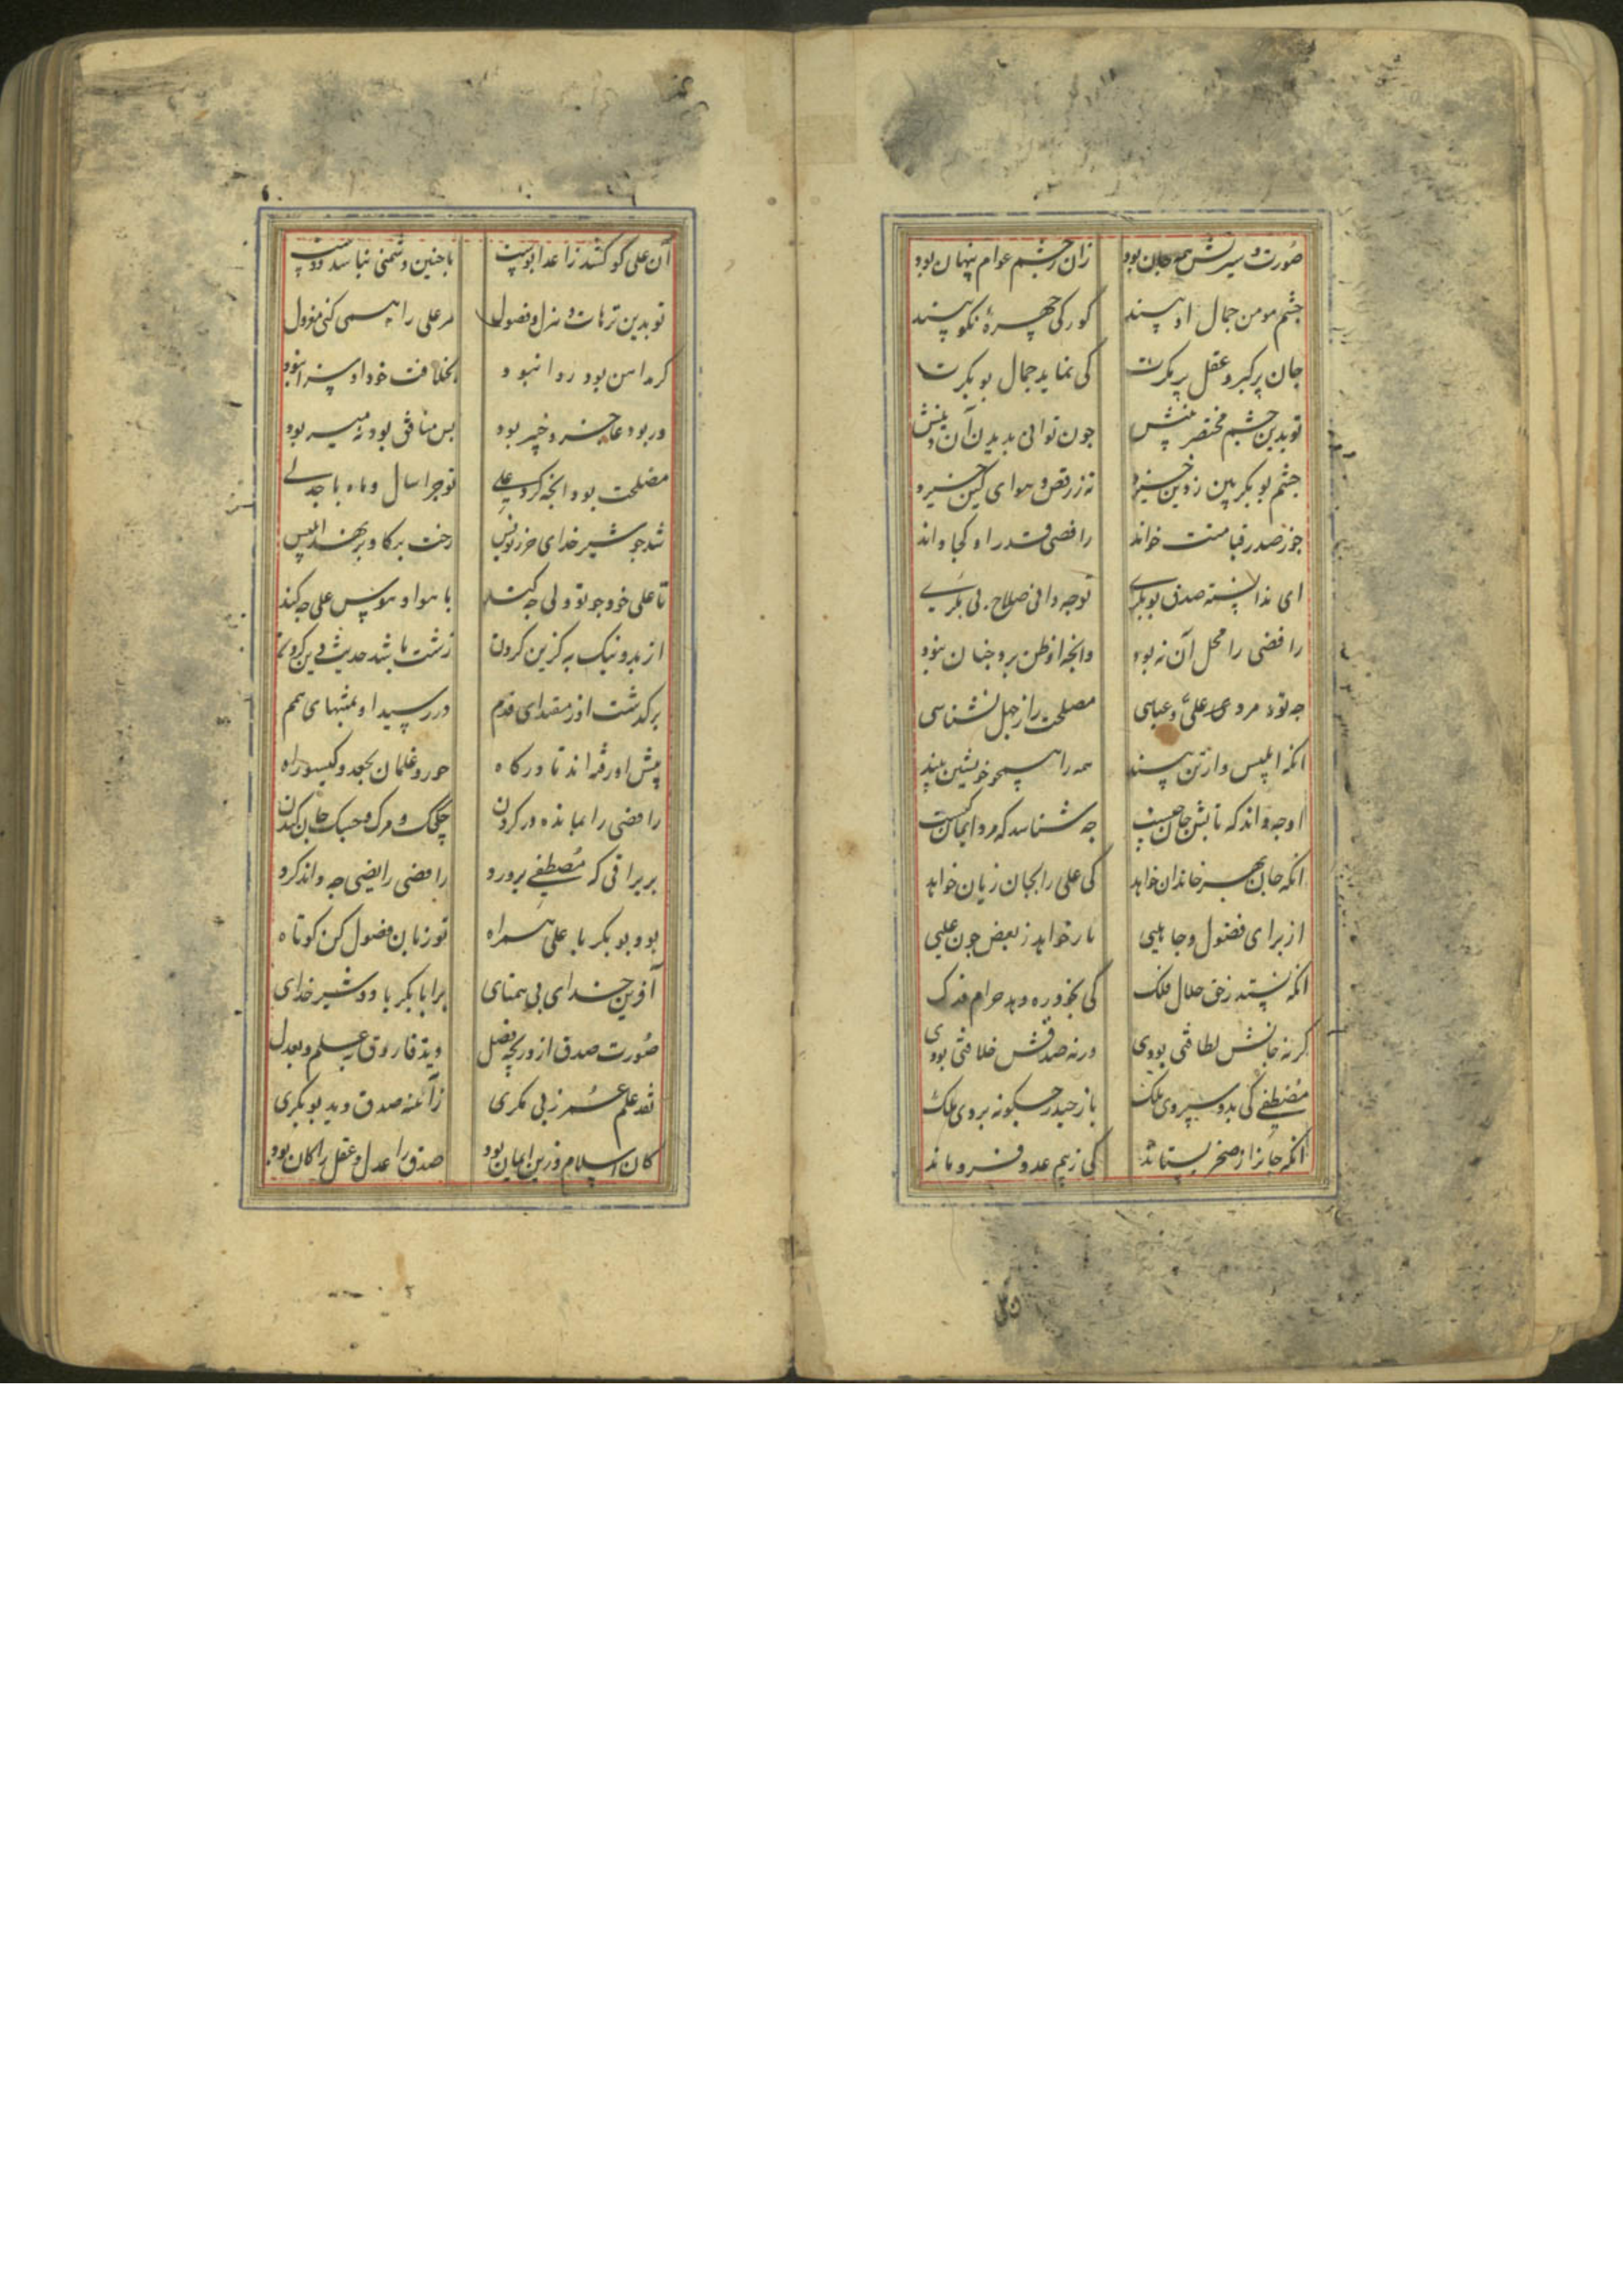 صورت و سیرتش همه جان بود زان ز چشم عوام پنهان بود
چشم مومن جمال او بیند کور کی چهرهٔ نکو بیند
جان پر کبر و عقل پر مکرت کی نماید جمال بوبکرت
تو بدین چشم مختصر بینش چون توانی بدیدن آن دینش
چشم بوبکر بین ز دین خیزد نه ز رفض و هوای کین خیزد
جز ز صدر قیامتت خواند رافضی قدر او کجا داند
ای ندانسته صدق بوبکری تو چه دانی صلاح بی بکری
رافضی را محل آن نه بود وانچه او ظن برد چنان نبود
چه تو مرد علی و عباسی مصلحت را ز جهل نشناسی
انکه ابلیس وار تن بیند همه را همچو خویشتن بیند
او چه داند که تابش جان چیست چه شناسد که درد ایمان چیست
انکه جان بهر خاندان خواهد کی علی را بجان زیان خواهد
از برای فضول و جاهلیی نار خواهد ز بغض چون علیی
انکه نستد ز حق حلال فلک کی بخورده دهد حرام فدک
گر نه جانش لطافتی بودی ورنه صدقش خلافتی بودی
مصطفی کی بدو سپردی ملک باز حیدر چگونه بردی ملک
انکه جان را ز صخر بستاند کی ز بیم عدو فرو ماند
آن علی کو کشد ز اعدا پوست با چنین دشمنی نباشد دوست
تو بدین ترهات و هزل و فضول مر علی را همی کنی معزول
گر این بود روا نبود بخلافت خود او سزا نبود
ور بود عاجز و خیر بود بس منافق بود نه میر بود
مصلحت بود آنچه کرد علی تو چرا سال و ماه با جدلی
شد چو شیر خدای حرز نویس رخت بر گاو بر نهد ابلیس
تا علی خود چو تو ولی چه کند با هوا و هوس علی چه کند
از بد و نیک به گزین کردن زشت باشد حدیث دین کردن
برگذشت او ز مقتدای قدم در رسید او بمنتهای همم
پیش او رفته اند تا درگاه حور و غلمان بجعد و گیسو راه
رافضی را بمانده در گردن چک چک و مرگ و جسک جان کندن
بر براقی که مصطفی پرورد رافضی رایضی چه داند کرد
بود بوبکر با علی همراه تو زبان فضول کن کوتاه
آفرین خدای بی همتای بر ابابکر باد و شیر خدای
صورت صدق از دریچه فضل دید فاروق را بعلم و بعدل
نقد علم عمر ز بی مکری زآینه صدق دید بوبکری
کان اسلام و زین ایمان بود صدق را عدل و عقل را کان بود